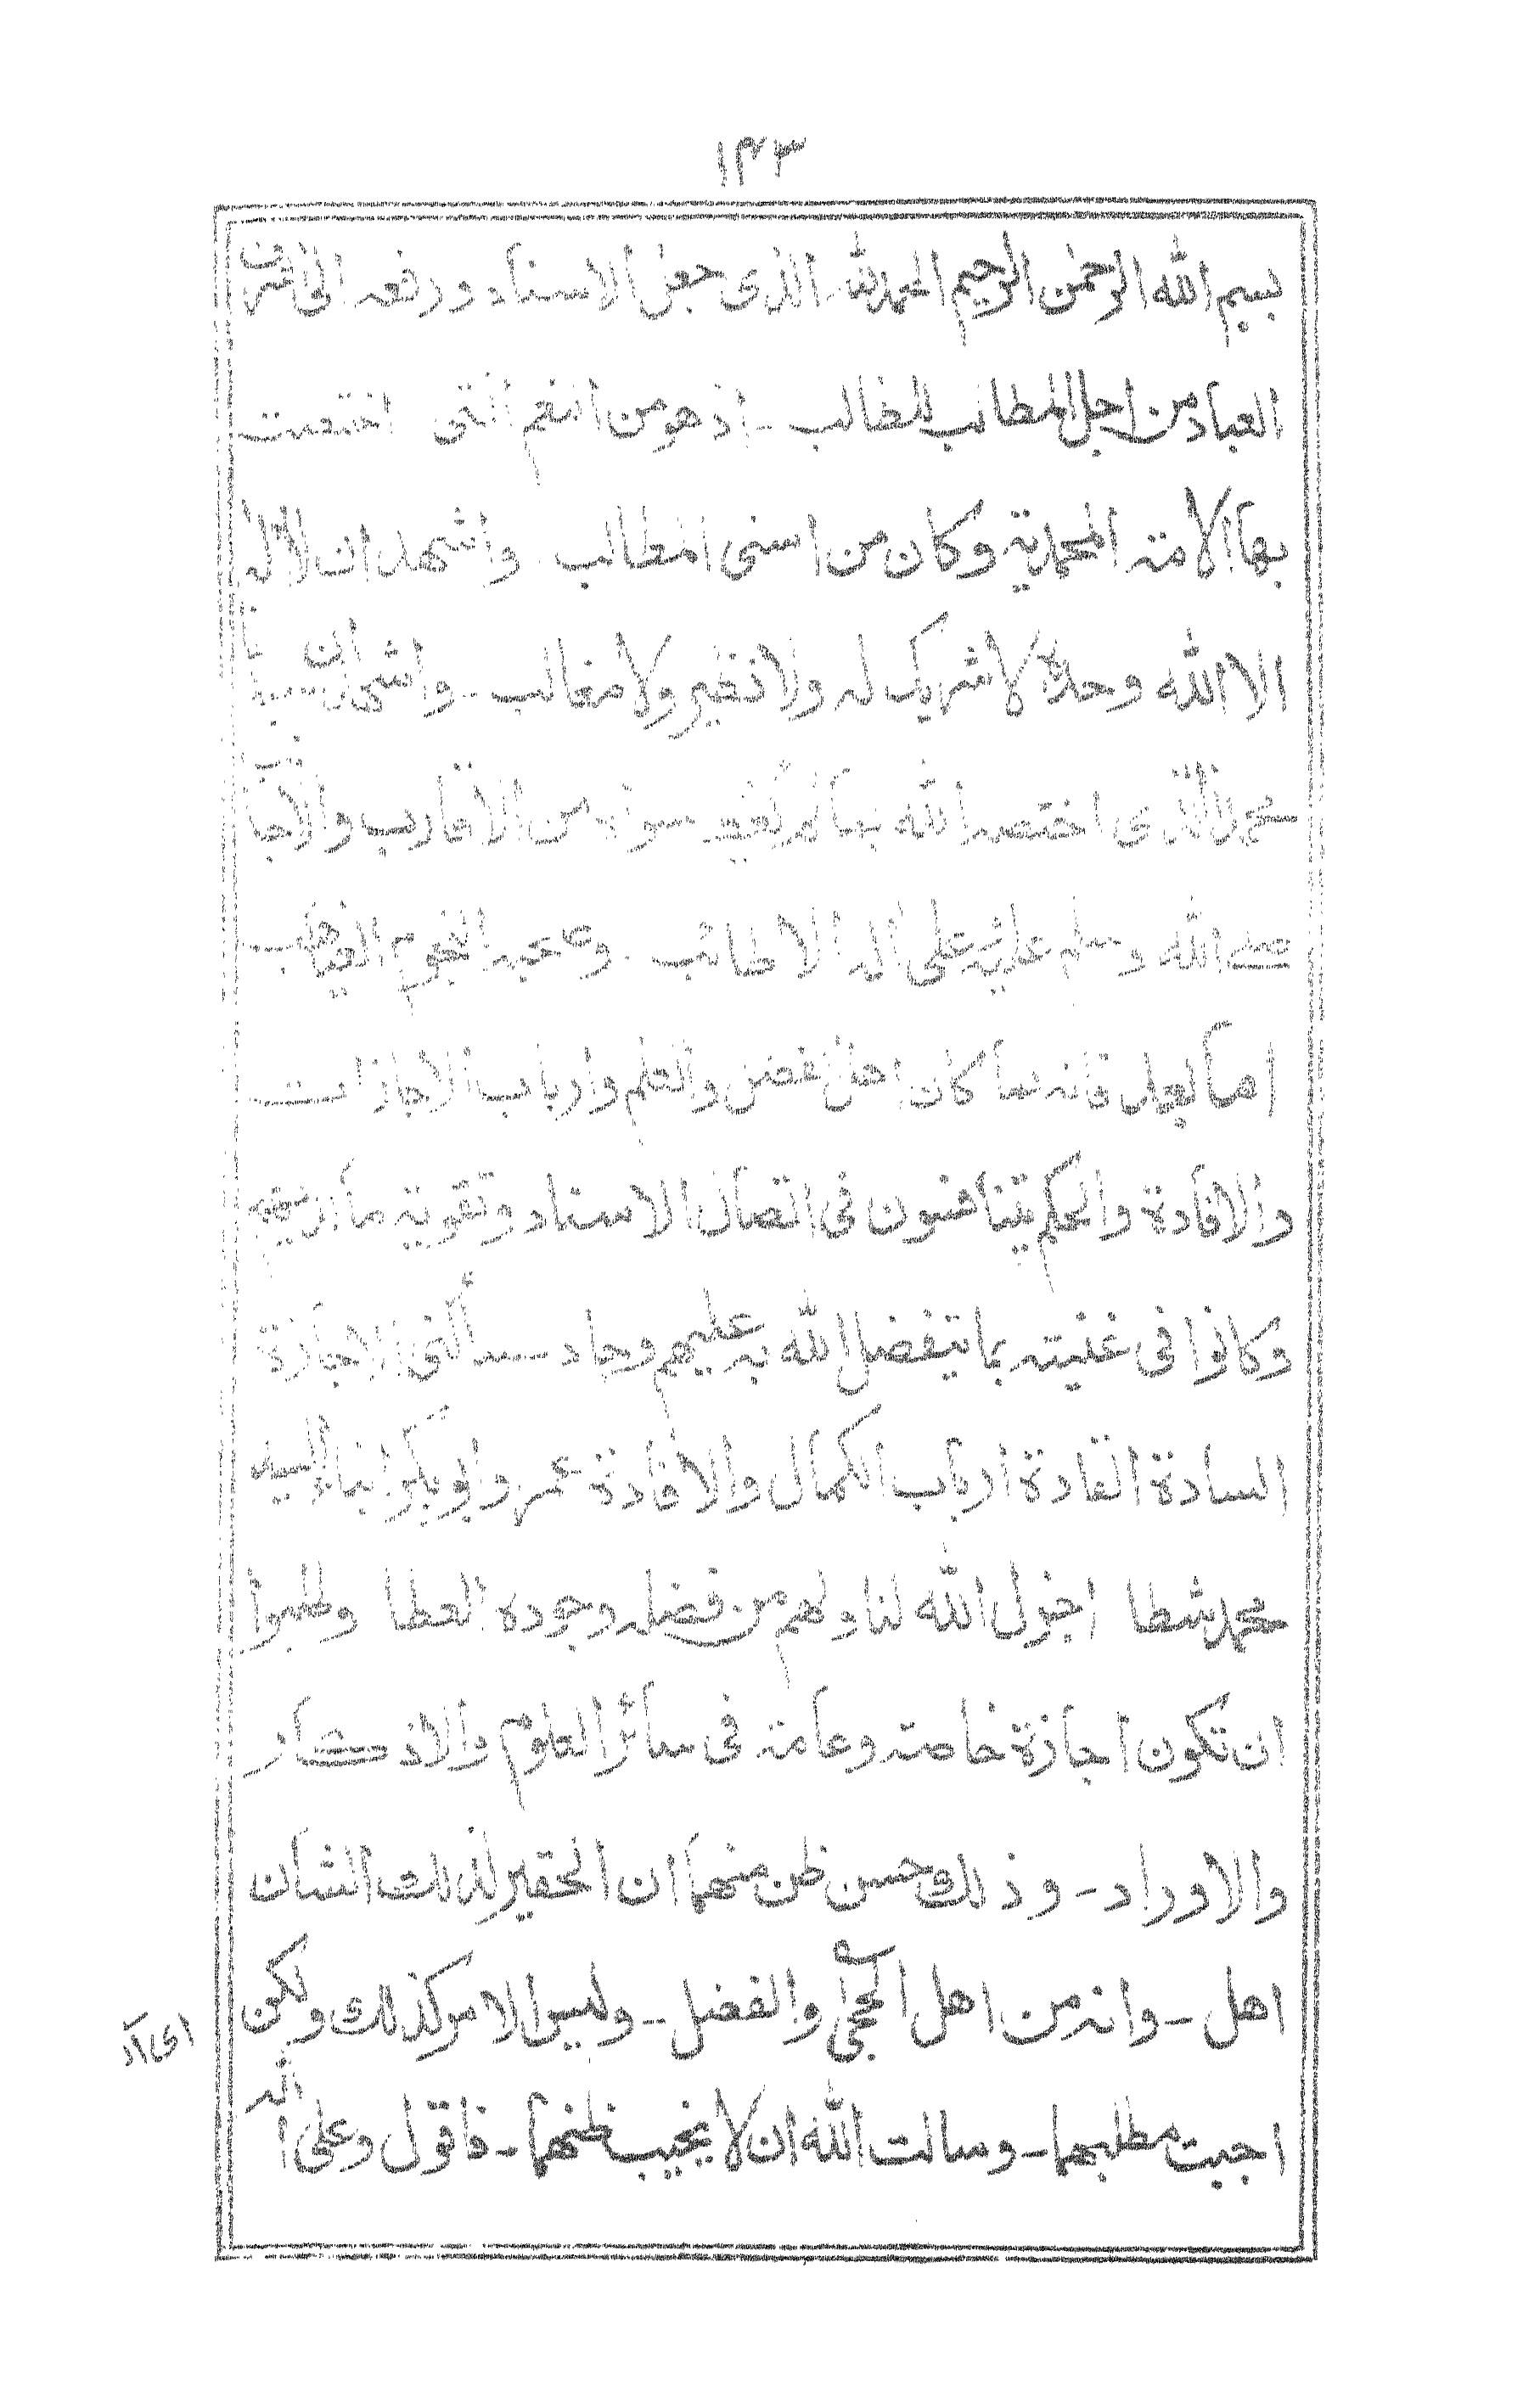 ١٢٣
بسم الله الرحمن الرحيم الحمد لله الذى جعل الاسناد ورفعه الى اشرف
العباد من اجل المطالب للطالب - اذ هو من النعم التى اختصت
بها الامة المحمدية وكان من اسنى المطالب - واشهد ان لا اله
الا الله وحده لا شريك له ولا نظير ولا مغالب - واشهد ان سيدنا
محمد الذى اختصه الله بما لم يعط سواه من الاقارب والاجانب
صلے الله وسلم عليه على اله الاطائب - وصحبه النجوم الغياهب
اما بعد فانه لما كان اهل الفضل والعلم وارباب الاجازات
والافادة والحكم يتنافسون فى اتصال الاسناد وتقوية
وكانوا فى غنيته بما يتفضل الله به عليهم وجاد - سألنى الاجازة
السادة القادة ارباب الكمال والافادة عمر وابو بكر ابناء السيد
محمد شطا اجزل الله لنا ولهم من فضله وجوده العطا وطلبوا
ان تكون اجازة خاصة وعامة فى سائر العلوم والاذكار
والاوراد - وذلك حسن ظن منهما ان الحقير لذلك الشان
اهل - وانه من اهل الحجى والفضل - وليس الامر كذلك ولكن
اجبت مطلبهما - وسالت الله ان لا يخيب ظنهما - فاقول وعلى الله